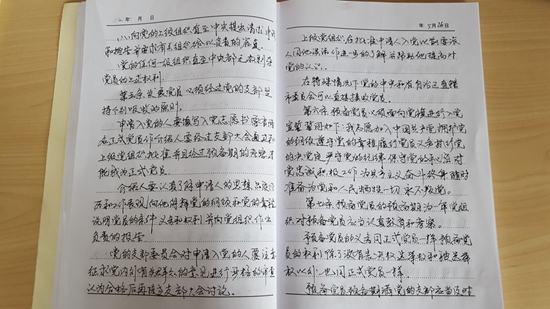 年 月 日
(八)向党的上级组织直至中央提出请求、申诉
和控告,并要求有关组织给以负责的答复。
党的任何一级组织直至中央都无权剥夺
党员的上述权利。
第五条 发展党员,必须经过党的支部,坚
持个别吸收的原则。
申请入党的人要填写入党志愿书,要有两
名正式党员作介绍人,要经过支部大会通过和
上级党组织批准,并且经过预备期的考察,才
能成为正式党员。
介绍人要认真了解申请人的思想、品质、经
历和工作表现,向他解释党的纲领和党的章程,
说明党员的条件、义务和权利,并向党组织作出
负责的报告
党的支部委员会对申请入党的人,要注意
征求党内外有关群众的意见,进行严格的审查,
认为合格后再提交支部大会讨论。
年 5月26日
上级党组织在批准申请人入党以前,要派
人同他谈话,作进一步的了解,并帮助他提高对
党的认识。
在特殊情况下,党的中央和省、自治区、直辖
市委员会可以直接接收党员。
第六条 预备党员必须面向党旗进行入党
宣誓。誓词如下:我志愿加入中国共产党,拥护党
的纲领,遵守党的章程,履行党员义务,执行党
的决定,严守党的纪律,保守党的秘密,对
党忠诚,积极工作,为共产主义奋斗终身,随时
准备为党和人民牺牲一切,永不叛党。
第七条 预备党员的预备期为一年。党组
织对预备党员应当认真教育和考察。
预备党员的义务同正式党员一样。预备党
员的权利,除了没有表决权、选举权和被选举
权以外,也同正式党员一样。
预备党员预备期满,党的支部应当及时